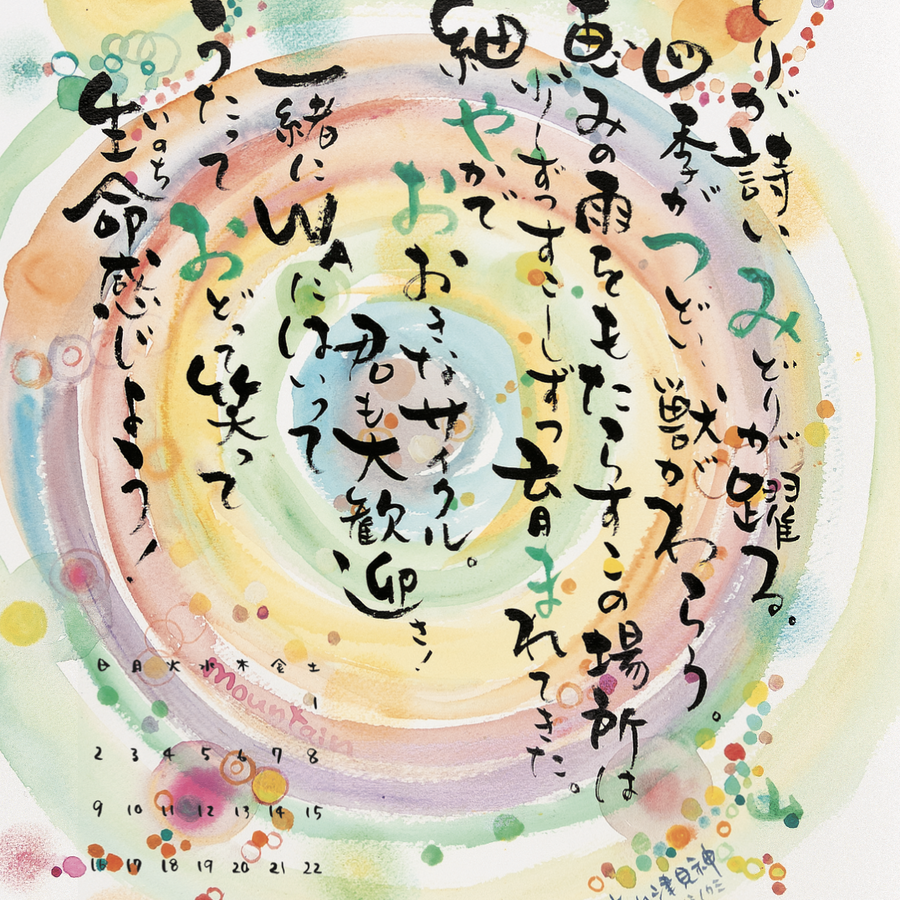 とりが詩い みどりが躍る。
四季が つどい 獣がわらう。
恵みの雨をもたらすこの場所は
少しずつ すこしずつ 育まれてきた。
細やかで
おおきなサイクル。
君も大歓迎さ!
一緒にWAにはいって
うたって おどって笑って
いのち
生命感じよう!
日 月 火 水 木 金 土
1
2 3 4 5 6 7 8
9 10 11 12 13 14 15
16 17 18 19 20 21 22
mountain
津見神